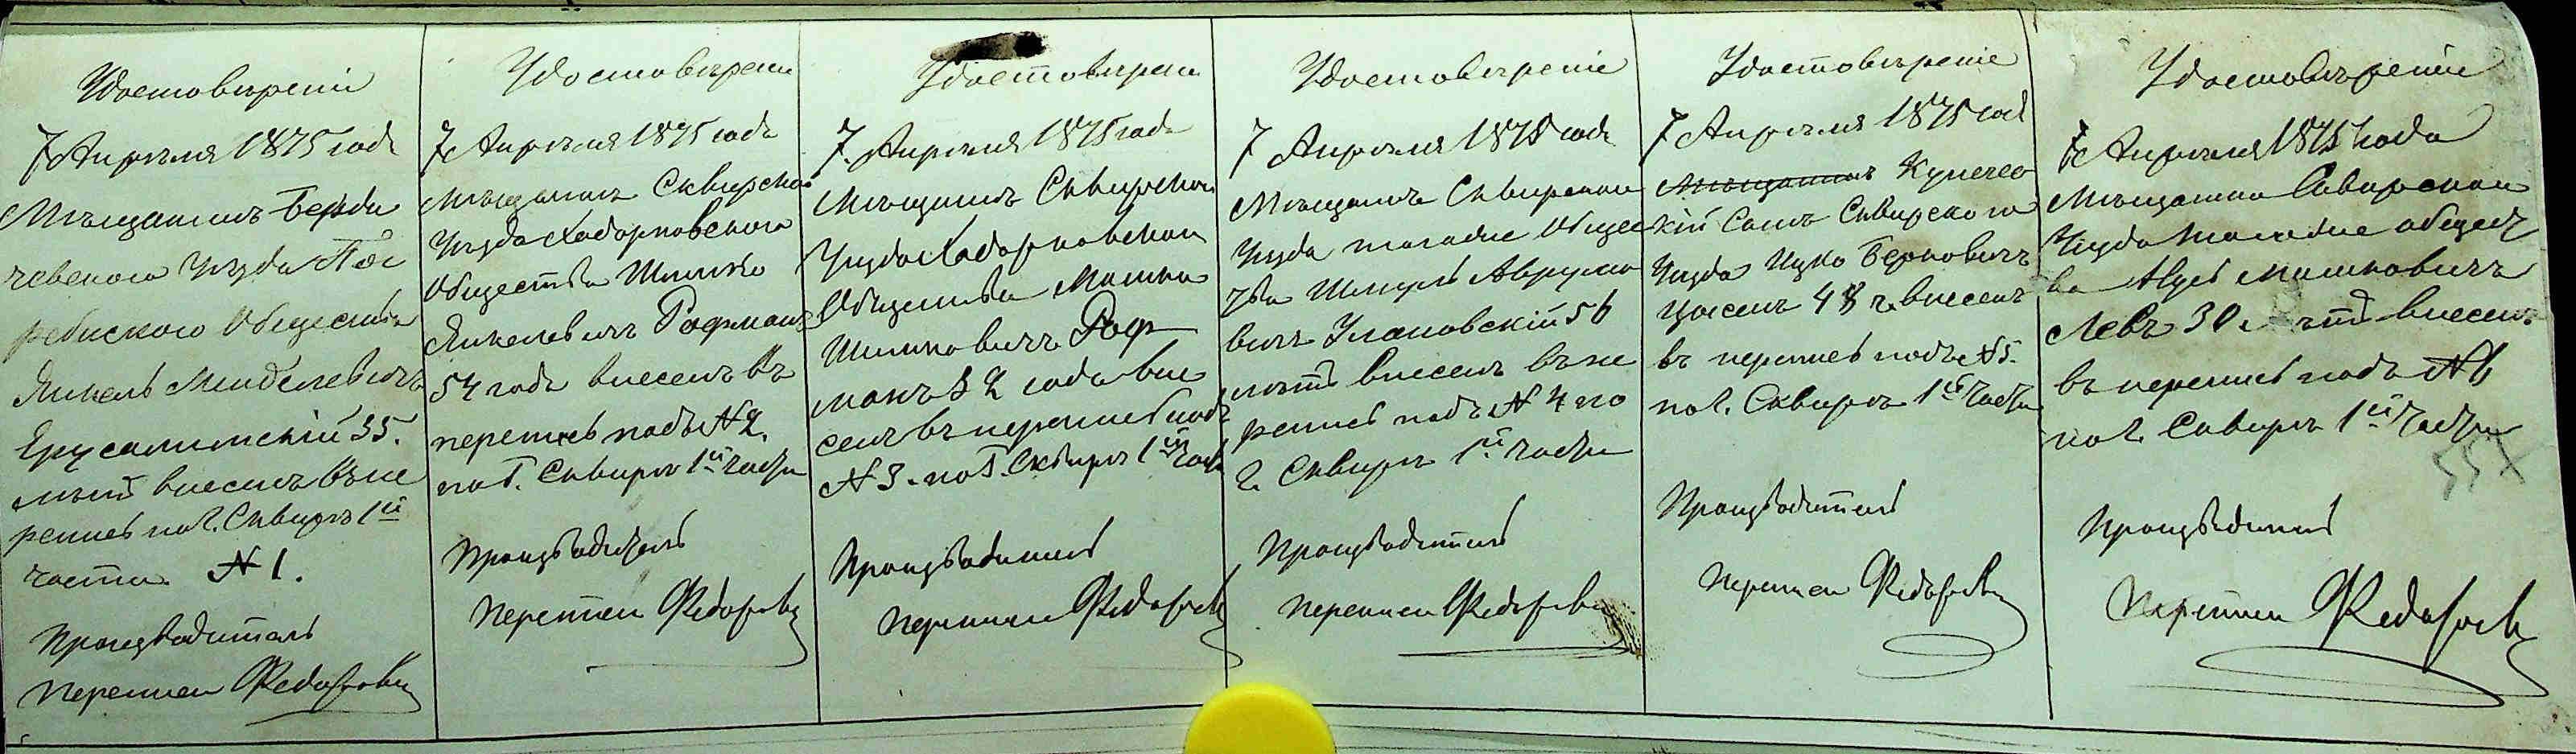 Удостовѣреніе
7 Апрѣля 1875 года
Мѣщанинъ Берди
чевскаго Уѣзда Пог
ребискаго Общества
Янкель Менделевичъ
Ерусалимскій 35.
лѣтъ внесенъ въ пе
репись по г. Сквирѣ 1й
части № 1.
Производитель
переписи Федоровъ
Удостовѣрени
7 Апрѣля 1875 года
Мѣщанинъ Сквирска
Уѣзда Ходорковскаго
Общества Шлимко
Янкелевичъ Рофманъ
54 года внесенъ въ
перепись подъ № 2.
по г. Сквирѣ 1й части
Производитель
переписи Федоровъ
Удостовѣрени
7. Апрѣля 1875 года
Мѣщанинъ Сквирскаго
Уѣзда Ходорковскаго
Общества Мошко
Шлимковичъ Роф
манъ 32 года вне
сенъ въ перепись подъ
№ 3. по г. Сквирѣ 1й части
Производитель
переписи Федоровъ
Удостовѣреніе
7 Апрѣля 1875 года
Мѣщанинъ Сквирскаго
Уѣзда того же Общес
тва Шмуль Аврумо
вичъ Улановскій 56
лѣтъ внесенъ въ пе
репись подъ № 4 по
г. Сквирѣ 1й части
Производитель
переписи Федоровъ
Удостовѣреніе
7 Апрѣля 1875 год
Мѣщанинъ Купечес
кій Сынъ Сквирскаго
Уѣзда Ицко Берковичъ
48 г. внесенъ
въ перепись подъ № 5.
по г. Сквирѣ 1й части
Производитель
переписи Федоровъ
Удостовѣреніе
7 Апрѣля 1875 года
Мѣщанинъ Сквирскаго
Уѣзда того же общест
ва Мошковичъ
Левъ 30 лѣтъ внесенъ
въ перепись подъ № 6
по г. Сквирѣ 1й части
55
Производитель
переписи Федоровъ